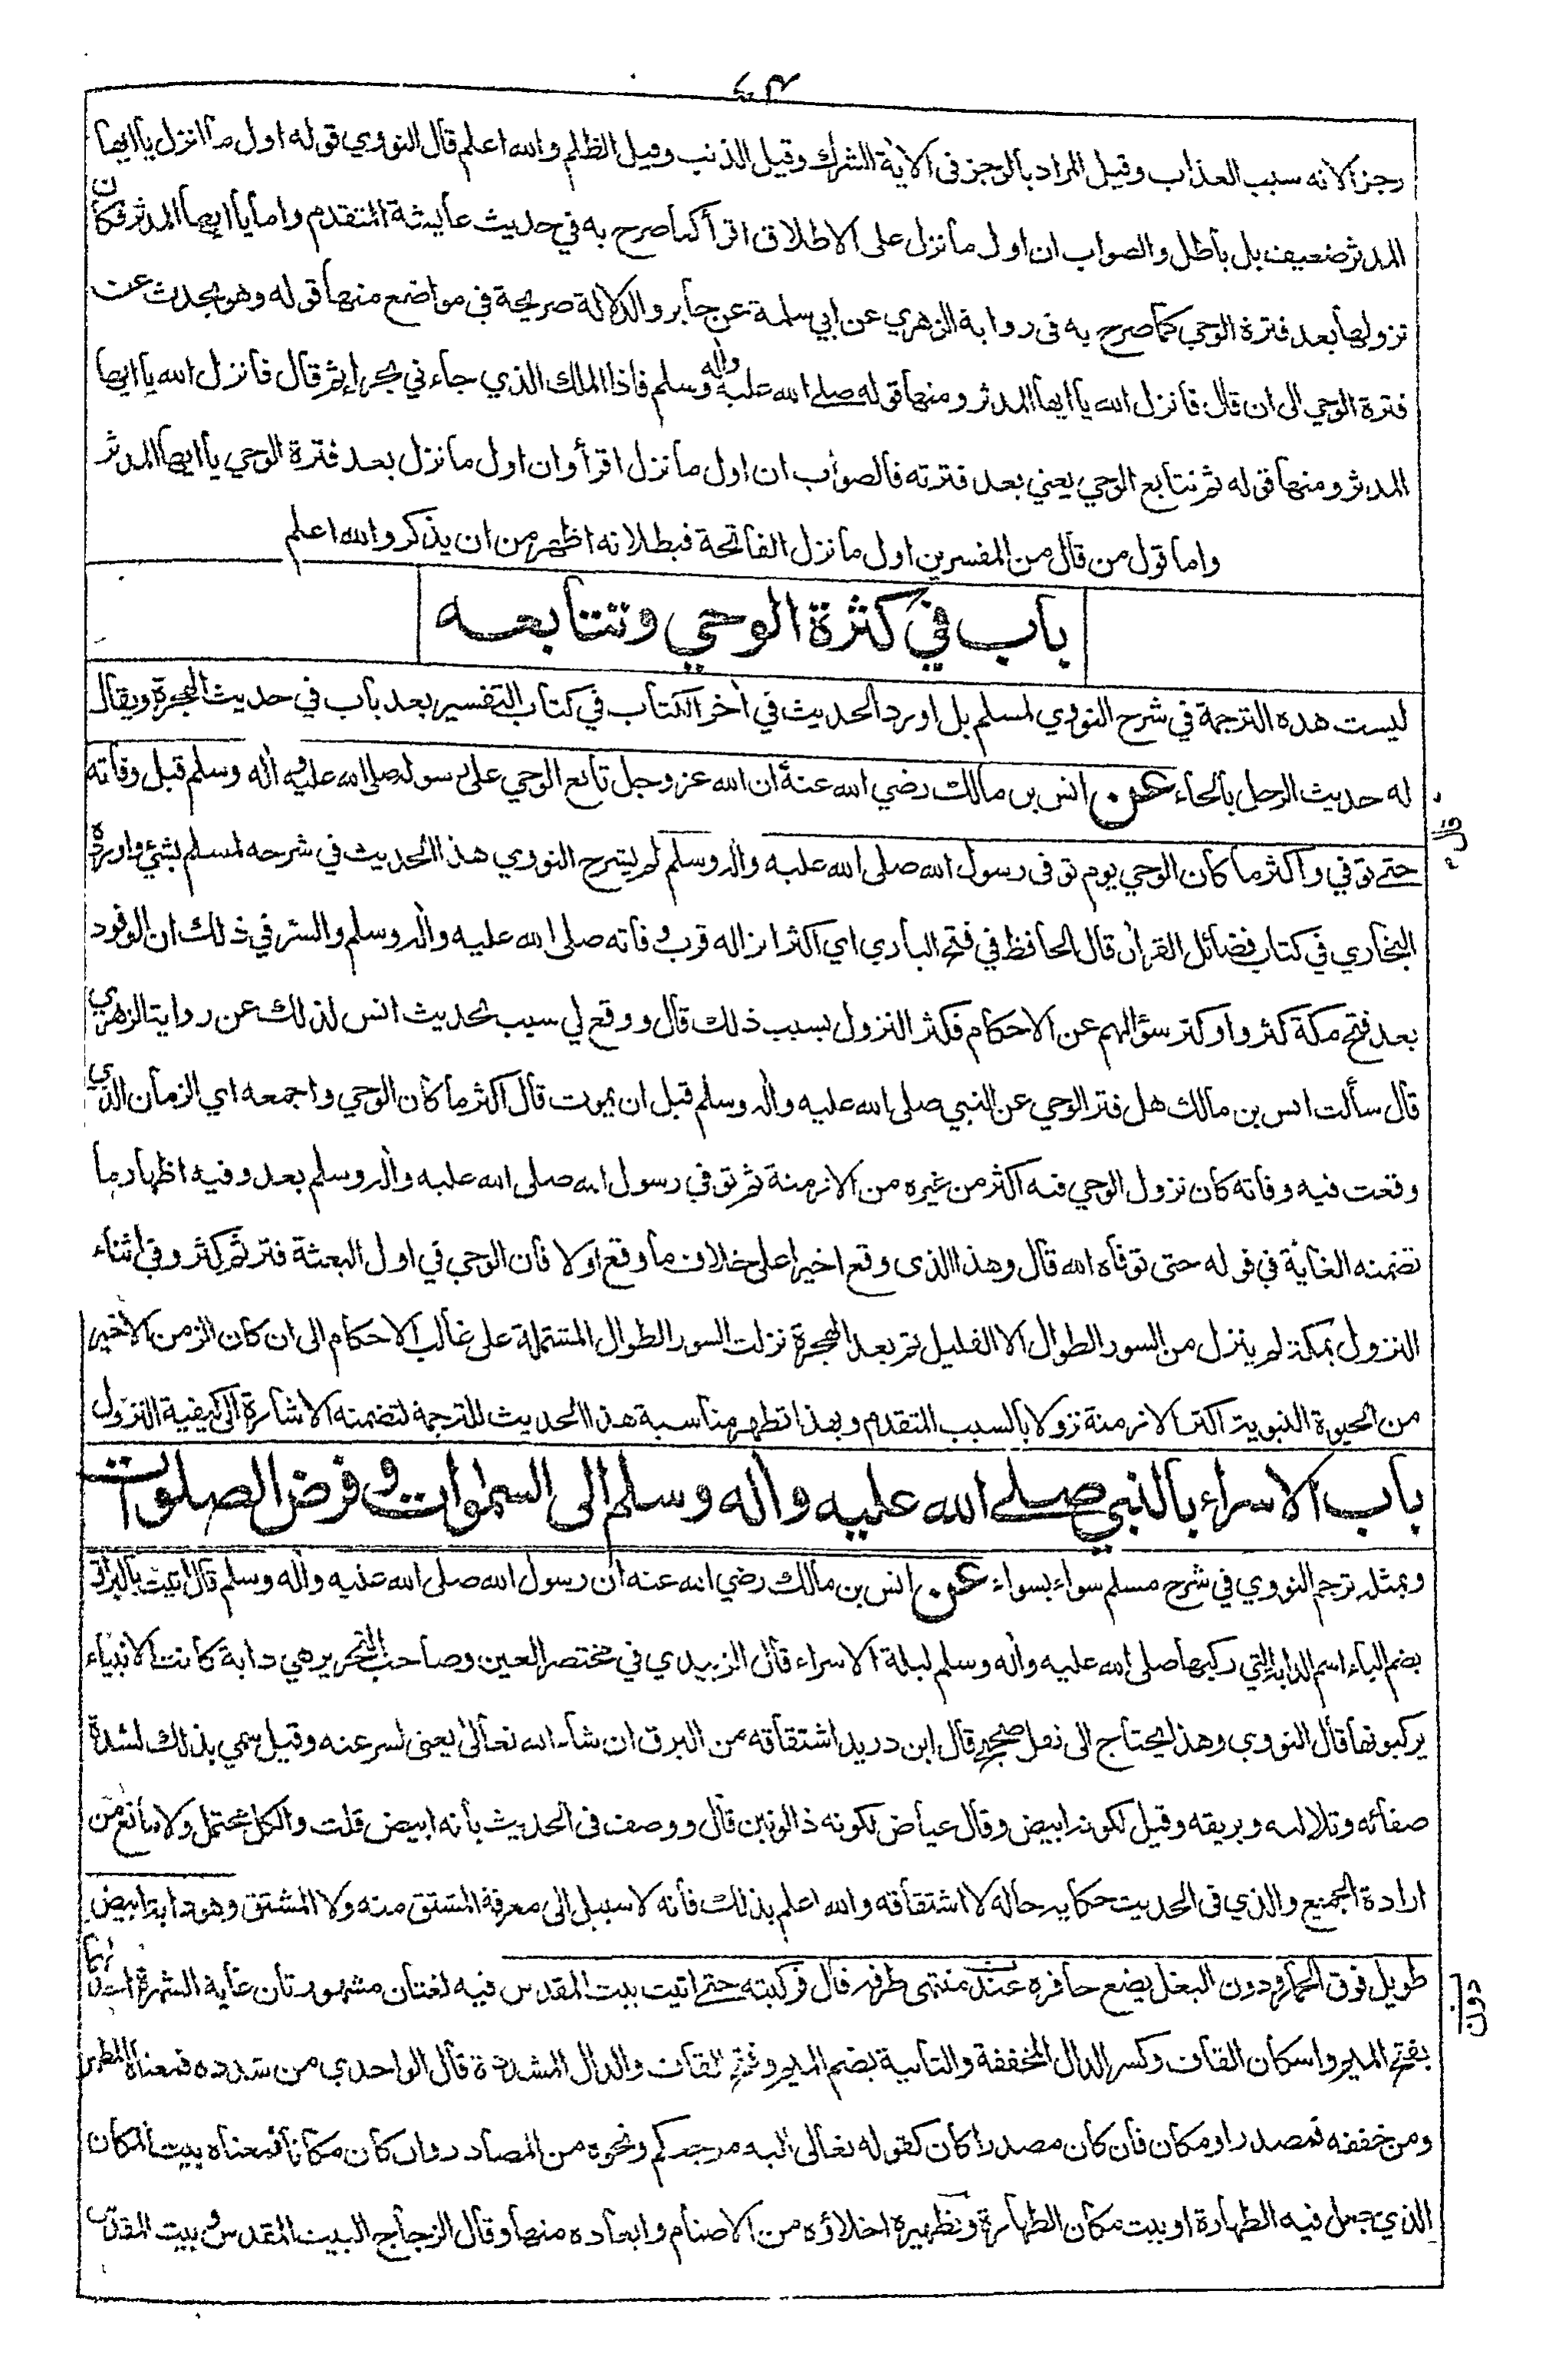 رجزا لانه سبب العذاب وقيل المراد بالرجز فى الاية الشرك وقيل الذنب وقيل الظلم والله اعلم قال النووي قوله اول ما انزل يا ايها
المدثر ضعيف بل باطل والصواب ان اول ما نزل على الاطلاق اقرأ كما صرح به في حديث عايشة المتقدم واما يا ايها المدثر فكان
نزولها بعد فترة الوحي كما صرح به فى رواية الزهري عن ابي سلمة عن جابر والدلالة صريحة في مواضع منها قوله وهو يحدث عن
فترة الوحي الى ان قال فانزل الله يا ايها المدثر ومنها قوله صلے الله عليه واٰله وسلم فاذا الملك الذي جاءني بحراء ثم قال فانزل الله يا ايها
المدثر ومنها قوله ثم تتابع الوحي يعني بعد فترته فالصواب ان اول ما نزل اقرأ وان اول ما نزل بعد فترة الوحي يا ايها المدثر
واما قول من قال من المفسرين اول ما نزل الفاتحة فبطلانه اظهر من ان يذكر والله اعلم
باب في كثرة الوحي وتتابعه
ليست هذه الترجمة في شرح النووي لمسلم بل اورد الحديث في اٰخر الكتاب في كتاب التفسير بعد باب في حديث الهجرة ويقال
له حديث الرحل بالحاء عن انس بن مالك رضي الله عنه ان الله عز وجل تابع الوحي على رسوله صلى الله عليه واٰله وسلم قبل وفاته
حتے توفي واكثر ما كان الوحي يوم توفى رسول الله صلى الله عليه واٰله وسلم لم يشرح النووي هذا الحديث في شرحه لمسلم بشئ واورده
قال
البخاري في كتاب فضائل القراٰن قال الحافظ في فتح الباري اي اكثر انزاله قرب وفاته صلى الله عليه واٰله وسلم والسر في ذلك ان الوفود
بعد فتح مكة كثروا وكثر سؤالهم عن الاحكام فكثر النزول بسبب ذلك قال ووقع لي سبب تحديث انس لذلك عن رواية الزهري
قال سألت انس بن مالك هل فتر الوحي عن النبي صلى الله عليه واٰله وسلم قبل ان يموت قال اكثر ما كان الوحي واجمعه اي الزمان الذي
وقعت فيه وفاته كان نزول الوحي فيه اكثر من غيره من الازمنة ثم توفي رسول الله صلى الله عليه واٰله وسلم بعد وفيه اظهار ما
تضمنه الغاية في قوله حتى توفاه الله قال وهذا الذى وقع اخيرا على خلاف ما وقع اولا فان الوحي في اول البعثة فتر ثم كثر وفي اثناء
النزول بمكة لم ينزل من السور الطوال الا القليل ثم بعد الهجرة نزلت السور الطوال المشتملة على غالب الاحكام الى ان كان الزمن الاخير
من الحيوة النبوية اكثر الازمنة نزولا بالسبب المتقدم وبهذا تظهر مناسبة هذا الحديث للترجمة لتضمنه الاشارة الى كيفية النزول
باب الاسراء بالنبي صلے الله عليه واٰله وسلم الى السموات وفرض الصلوات
وبمثله ترجم النووي في شرح مسلم سواء بسواء عن انس بن مالك رضي الله عنه ان رسول الله صلى الله عليه واٰله وسلم قال اتيت بالبراق
بضم الباء اسم الدابة التي ركبها صلى الله عليه واٰله وسلم ليلة الاسراء قال الزبيدي في مختصر العين وصاحب التحرير هي دابة كانت الانبياء
يركبونها قال النووي وهذا يحتاج الى نقل صحيح قال ابن دريد اشتقاقه من البرق ان شاء الله تعالى يعنى لسرعته وقيل سمي بذلك لشدة
صفائه وتلالئه وبريقه وقيل لكونه ابيض وقال عياض لكونه ذا لونين قال ووصف فى الحديث بانه ابيض قلت والكل محتمل ولا مانع من
ارادة الجميع والذي فى الحديث حكاية حاله لا اشتقاقه والله اعلم بذلك فانه لا سبيل الى معرفة المشتق منه ولا المشتق وهو دابة ابيض
طويل فوق الحمار ودون البغل يضع حافره عند منتهى طرفه قال فركبته حتے اتيت بيت المقدس فيه لغتان مشهورتان غاية الشهرة احداهما
بفتح الميم واسكان القاف وكسر الدال المخففة والثانية بضم الميم وفتح القاف والدال المشددة قال الواحدي من شدده فمعناه المطهر
ومن خففه فمصدر او مكان فان كان مصدرا كان كقوله تعالى اليه مرجعكم ونحوه من المصادر وان كان مكانا فمعناه بيت المكان
الذي جعل فيه الطهارة او بيت مكان الطهارة وتطهيره اخلاؤه من الاصنام وابعاده منها وقال الزجاج البيت المقدس وبيت المقدس